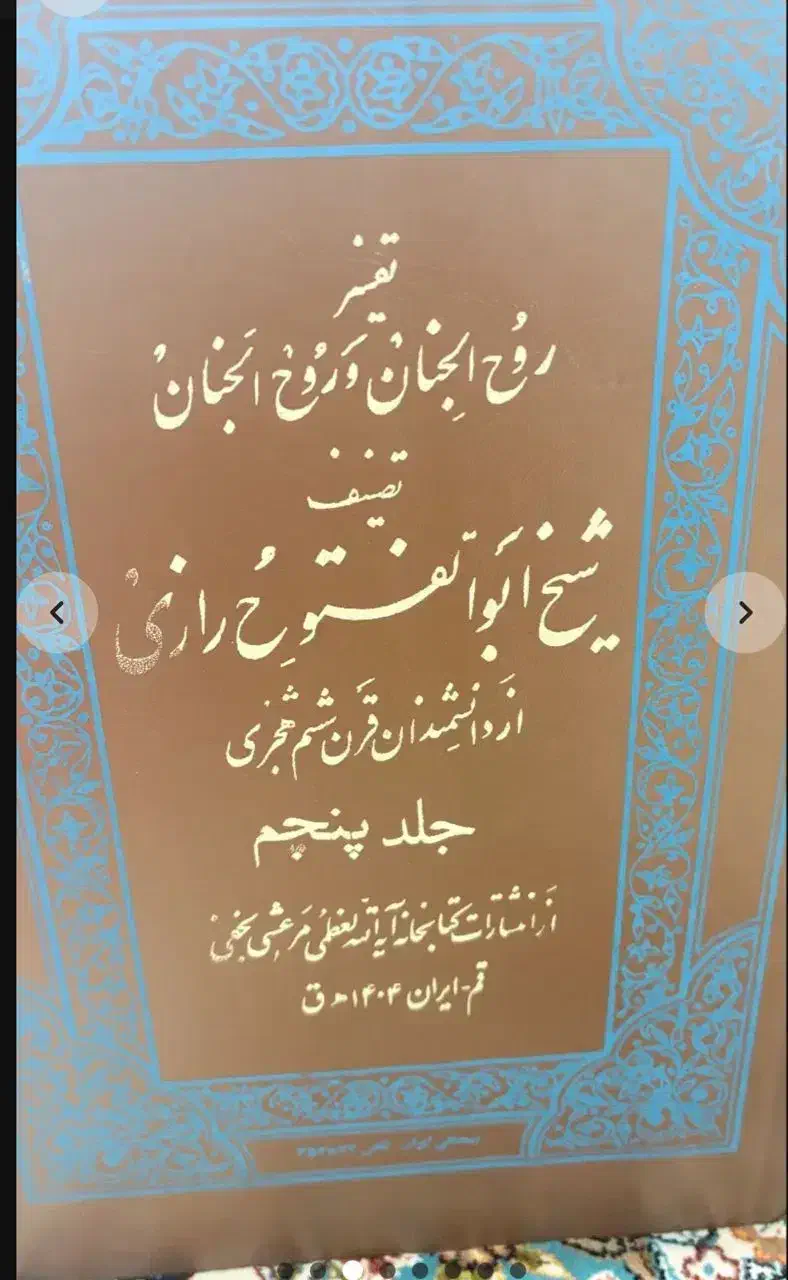 تفسیر
رَوْحُ الْجِنَانْ وَرُوحُ الْجَنَانْ
تصنیف
شیخ ابوالفتوح رازی
از دانشمندان قرن ششم هجری
جلد پنجم
از انتشارات کتابخانه آیة الله العظمی مرعشی نجفی
قم-ایران ۱۴۰۴ هـ ق